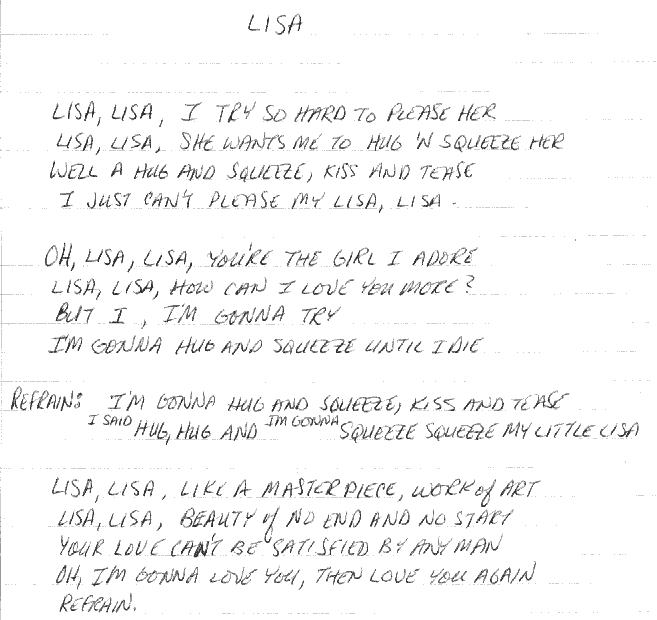 LISA
LISA, LISA, I TRY SO HARD TO PLEASE HER
LISA, LISA, SHE WANTS ME TO HUG 'N SQUEEZE HER
WELL A HUG AND SQUEEZE, KISS AND TEASE
I JUST CAN'T PLEASE MY LISA, LISA.
OH, LISA, LISA, YOU'RE THE GIRL I ADORE
LISA, LISA, HOW CAN I LOVE YOU MORE?
BUT I, I'M GONNA TRY
I'M GONNA HUG AND SQUEEZE UNTIL I DIE
REFRAIN: I'M GONNA HUG AND SQUEEZE, KISS AND TEASE
I SAID HUG, HUG AND I'M GONNA SQUEEZE SQUEEZE MY LITTLE LISA
LISA, LISA, LIKE A MASTERPIECE, WORK of ART
LISA, LISA, BEAUTY of NO END AND NO START
YOUR LOVE CAN'T BE SATISFIED BY ANY MAN
OH, I'M GONNA LOVE YOU, THEN LOVE YOU AGAIN
REFRAIN.